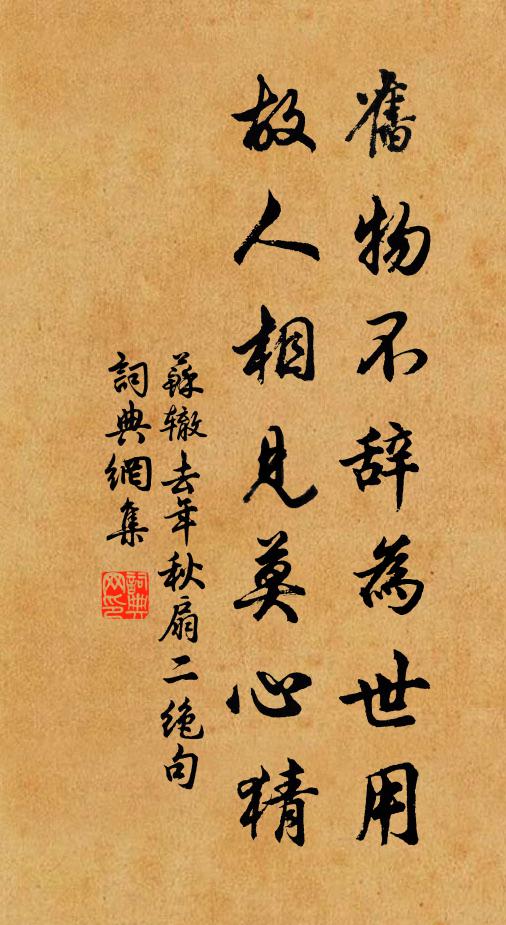 舊物不辞為世用
故人相見莫心猜
蘇辙去年秋扇二绝句
詞典網集
詞典网印